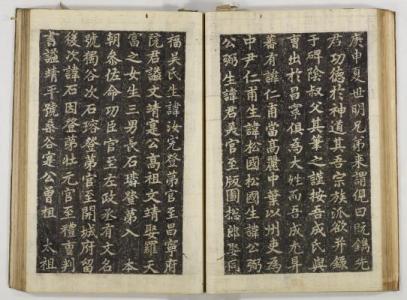 庚申夏世明兄弟來謂俔曰旣鐫先
君功德於神道其吾宗族派欲幷鐫
于碑陰叔父其筆之謹按吾成氏與
曺出於昌寧俱爲大姓而吾成尤
蕃有諱仁甫當高麗中葉以州吏爲
中尹仁甫生諱松國松國生諱公弼
公弼生諱君美官至版圖揔郎娶同
福吴氏生諱汝完登第官至昌寧府
院君謚文靖寔公高祖文靖娶羅天
富之女生三男長石璘登第入 本
朝叅佐命功臣官至左政丞有文名
號獨谷次石瑢登第官至開城府留
後次諱石因登第壯元官至禮曹判
書謚靖平號桑谷寔公曾祖 太祖